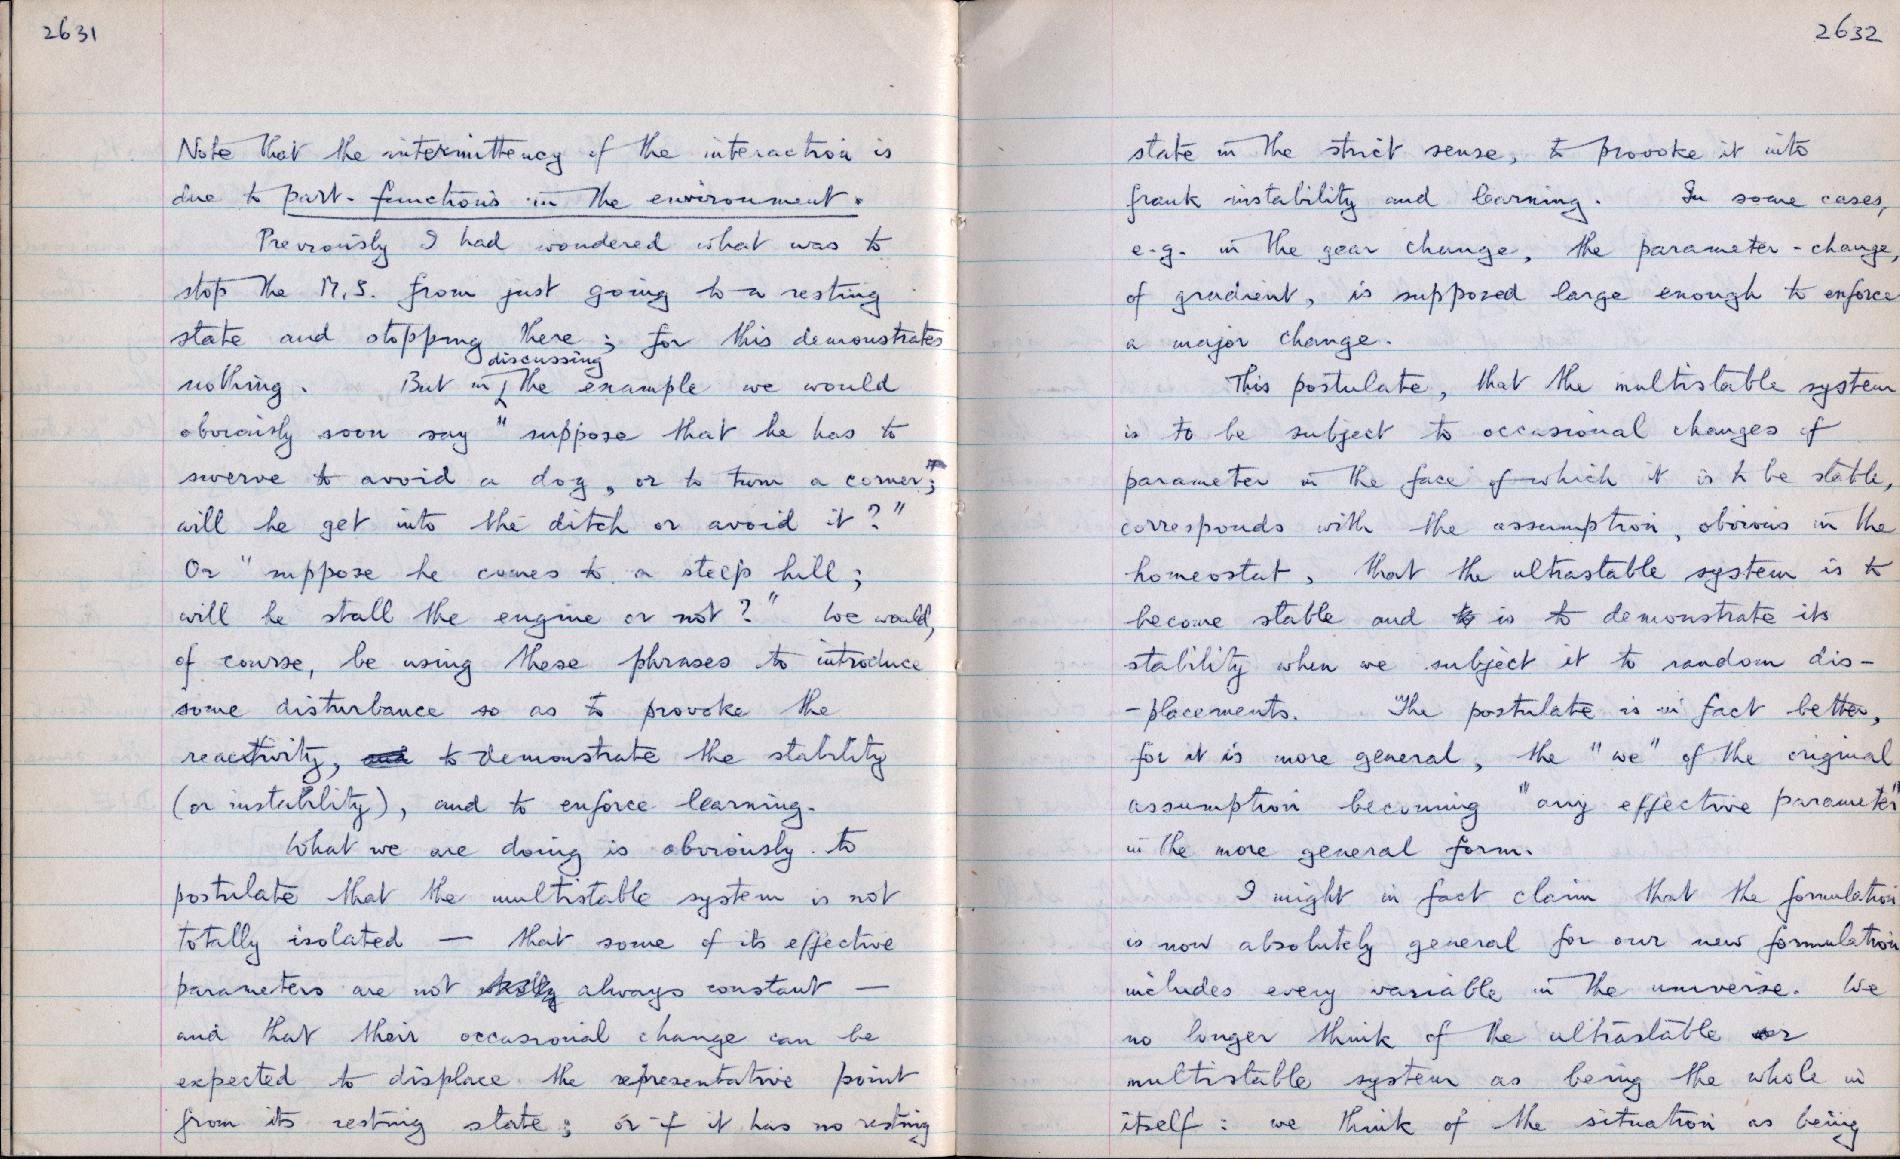 2631
Note that the intermittency of the interaction is
due to part-functions in the environment.
Previously I had wondered what was to
stop the M.S. from just going to a resting
state and stopping there; for this demonstrates
nothing. But in discussing the example we would
obviously soon say "suppose that he has to
swerve to avoid a dog, or to turn a corner;
will he get into the ditch or avoid it?"
Or "suppose he comes to a steep hill;
will he stall the engine or not?" We would,
of course, be using these phrases to introduce
some disturbance so as to provoke the
reactivity, and to demonstrate the stability
(or instability), and to enforce learning.
What we are doing is obviously to
postulate that the multistable system is not
totally isolated — that some of its effective
parameters are not always constant —
and that their occasional change can be
expected to displace the representative point
from its resting state; or if it has no resting
2632
state in the strict sense, to provoke it into
frank instability and learning. In some cases,
e.g. in the gear change, the parameter-change,
of gradient, is supposed large enough to enforce
a major change.
This postulate, that the multistable system
is to be subject to occasional changes of
parameter in the face of which it is to be stable,
corresponds with the assumption, obvious in the
homeostat, that the ultrastable system is to
become stable and is to demonstrate its
stability when we subject it to random dis-
-placements. The postulate is in fact better,
for it is more general, the "we" of the original
assumption becoming "any effective parameter"
in the more general form.
I might in fact claim that the formulation
is now absolutely general for our new formulation
includes every variable in the universe. We
no longer think of the ultrastable or
multistable system as being the whole in
itself: we think of the situation as being